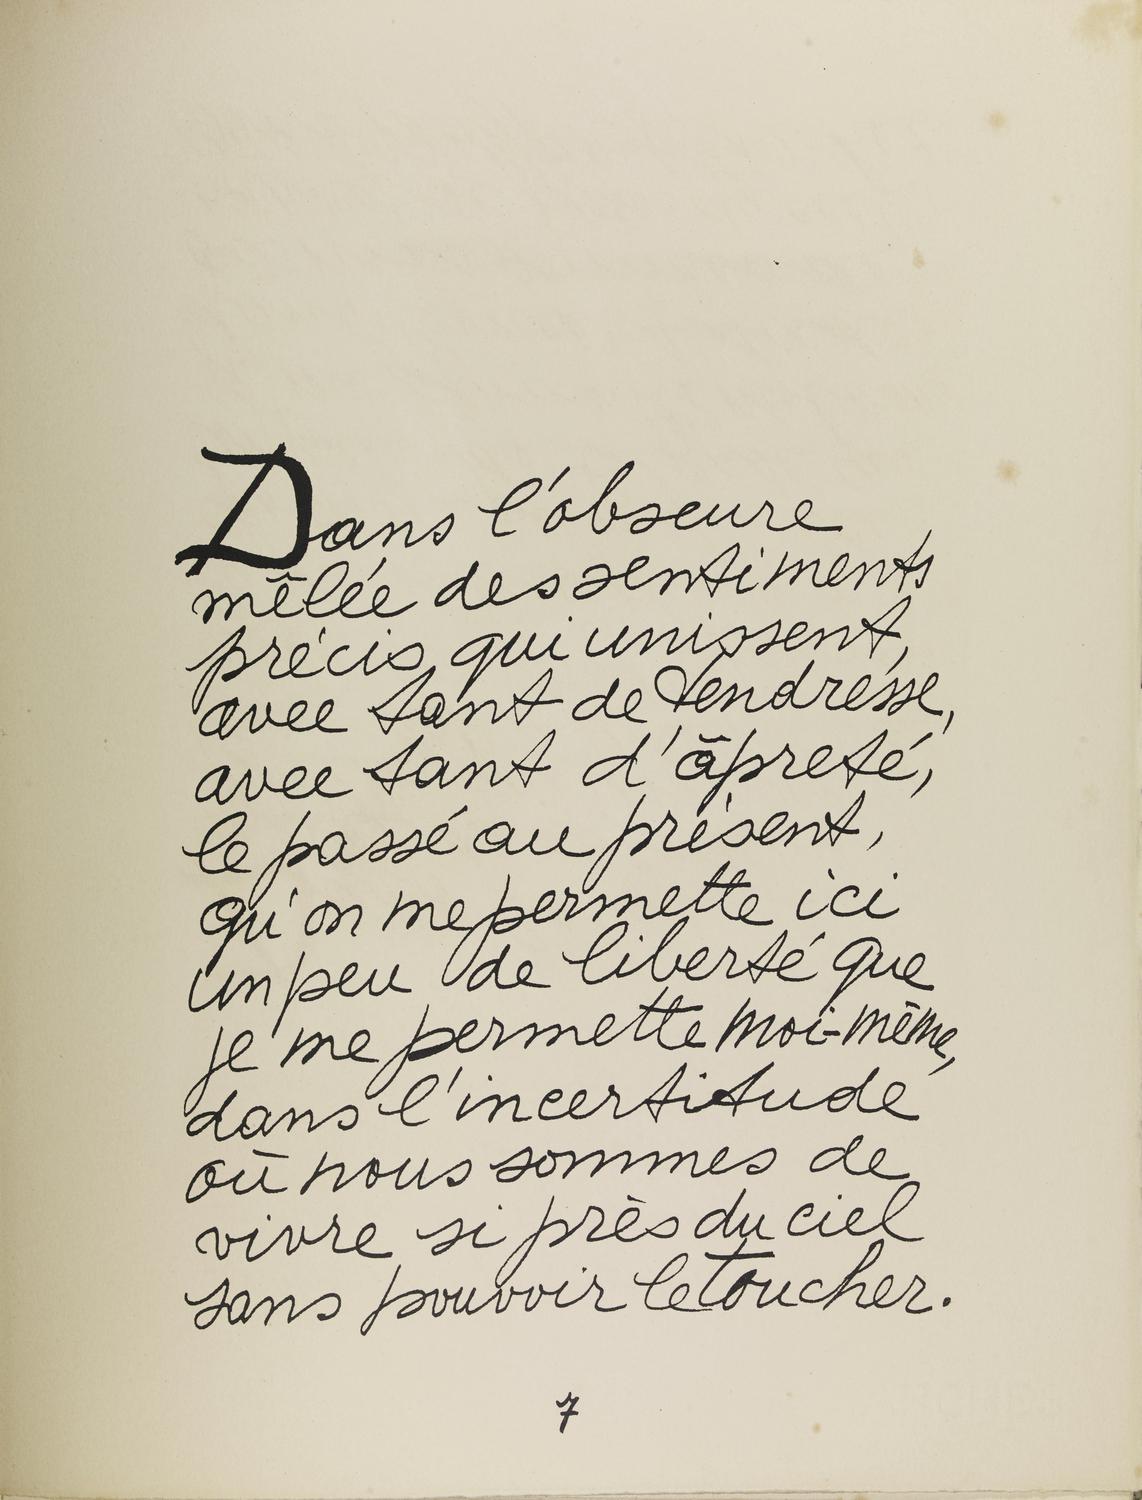 Dans l'obscure
mêlée des sentiments
précis qui unissent,
avec tant de tendresse,
avec tant d'âpreté,
le passé au présent,
qu'on me permette ici
un peu de liberté que
je me permette moi-même,
dans l'incertitude
où nous sommes de
vivre si près du ciel
sans pouvoir le toucher.
7